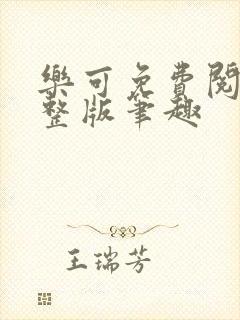 樂可免費閱
整版筆趣
王瑞芳